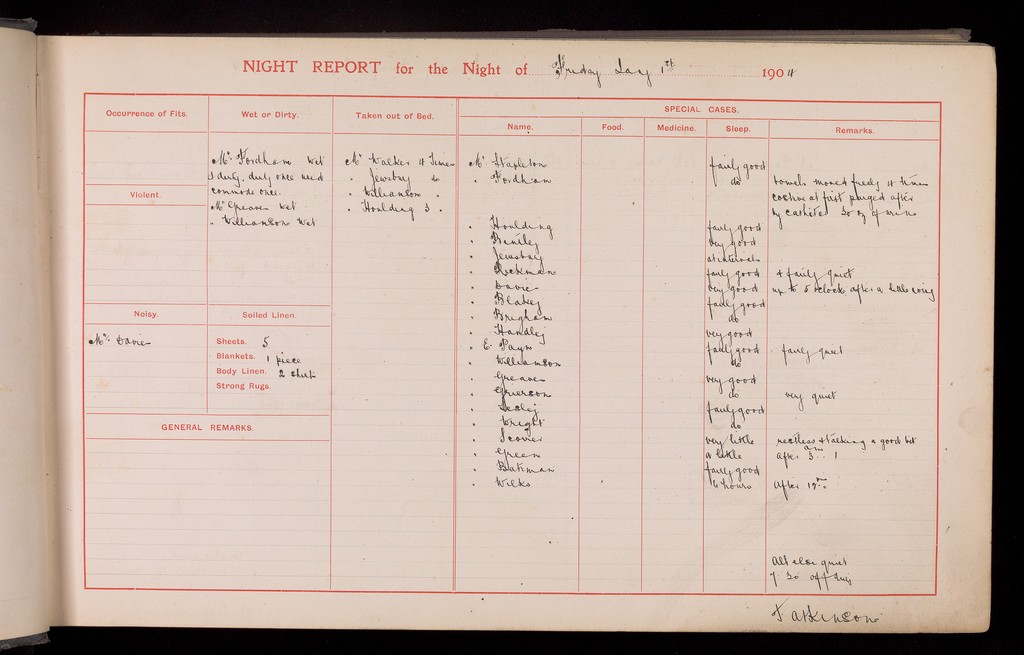 NIGHT REPORT for the Night of Friday Jany 1st 1904
Occurrence of Fits.
Wet or Dirty.
Mr. Fordham Wet
& dirty, dirty once used
commode once.
Mr Greaves Wet
" Williamson Wet
Taken out of Bed.
Mr Walker 4 Times
" Jewsbury do
" Williamson "
" Houlding 3 "
Violent.
Noisy.
Mr. Davies
Soiled Linen.
Sheets. 5
Blankets. 1 piece
Body Linen. 2 shirts
Strong Rugs.
GENERAL REMARKS.
SPECIAL CASES.
Name. Food. Medicine. Sleep. Remarks.
Mr Stapleton fairly good
" Fordham do bowels moved freely 4 times
costive at first purged after
by catheter 30 oz of urine
" Houlding fairly good
" Bentley very good
" Jewsbury at intervals
" Rickman fairly good & fairly quiet
" Davies very good up to 5 oclock after a little noisy
" Blakey fairly good
" Brigham do
" Handley very good
" E. Payn fairly good fairly quiet
" Williamson do
" Greaves very good
" Grierson do very quiet
" fairly good
" Wright do
" very little restless & talking a good bit
" Green a little after 3 am
" Bateman fairly good
" Wilks 4 hours After 12
All else quiet
7 30 off duty
F. Atkinson